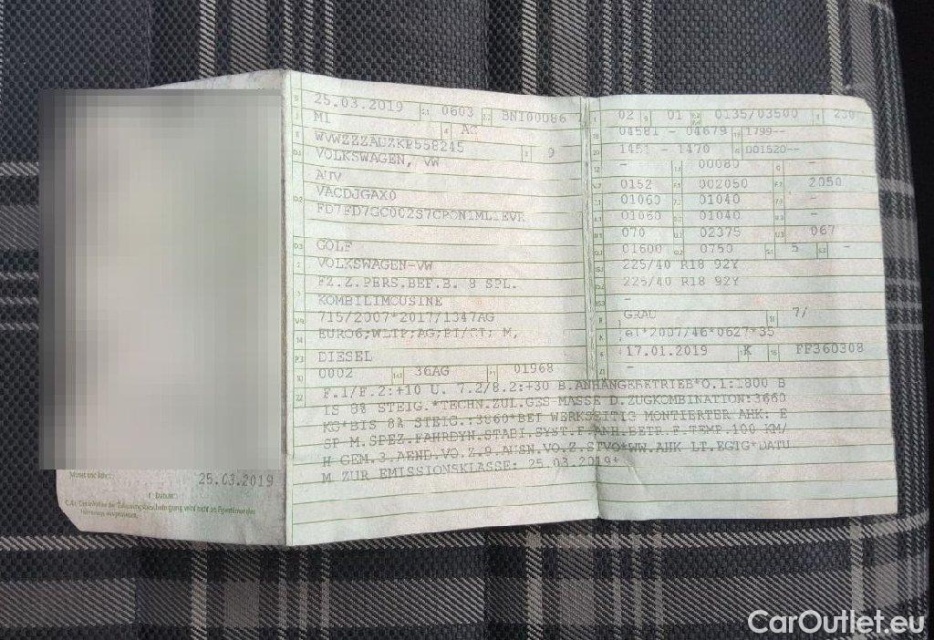 25.03.2019 0603 BNI00086 7
M1 AC
9
VOLKSWAGEN, VW
AUV
VACDJGAX0
GOLF
VOLKSWAGEN-VW
FZ.Z.PERS.BEF.B. 8 SPL.
KOMBILIMOUSINE
715/2007*2017/1347AG
EURO6;WLTP;AG;PI/CI; M,
DIESEL
0002 36AG 01968
02 01 0135/03500 230
04581 - 04679 1799--
1451 - 1470 001520--
- 00080 -
0152 002050 2050
01060 01040 -
01060 01040 -
070 02375 067
01600 0750 5 -
225/40 R18 92Y
225/40 R18 92Y
-
GRAU 7/
e1*2007/46*0627*35
17.01.2019 K FF360308
-
F.1/F.2:+10 U. 7.2/8.2:+30 B.ANHÄNGEBETRIEB*O.1:1800 B
IS 8% STEIG.*TECHN.ZUL.GES MASSE D.ZUGKOMBINATION:3660
KG*BIS 8% STEIG.:3860*BEI WERKSEITIG MONTIERTER AHK: E
SP M.SPEZ.FAHRDYN.STABI.SYST.F.ANH.BETR.F.TEMP.100 KM/
H GEM.3.AEND.VO.Z.9.AUSN.VO.Z.STVO*WW.AHK LT.EGTG*DATU
M ZUR EMISSIONSKLASSE: 25.03.2019*
25.03.2019
CarOutlet.eu